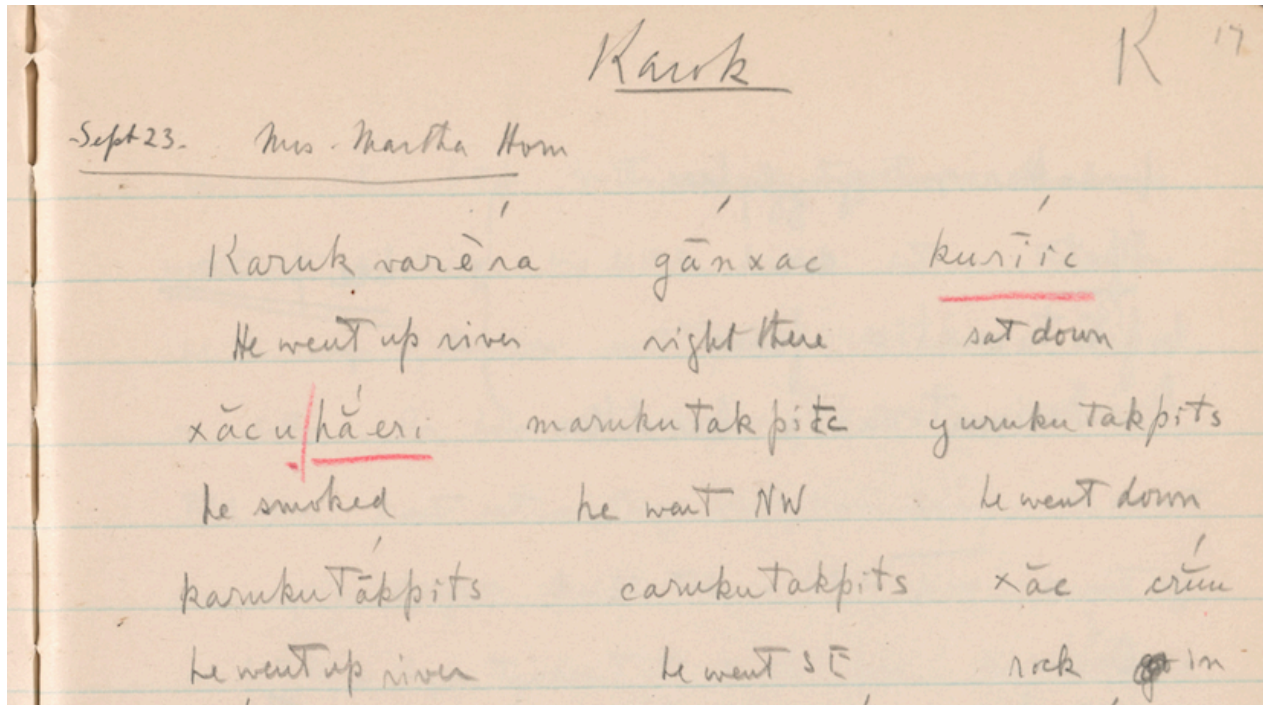 Karok K 17
Sept 23. Mrs. Martha Horn
Karuk varèra gānxac kurīic
He went up river right there sat down
xācu/hắeri marukutakpitc yurukutakpits
he smoked he went NW he went down
karukutākpits carukutakpits xāc crūu
he went up river he went SE rock go in